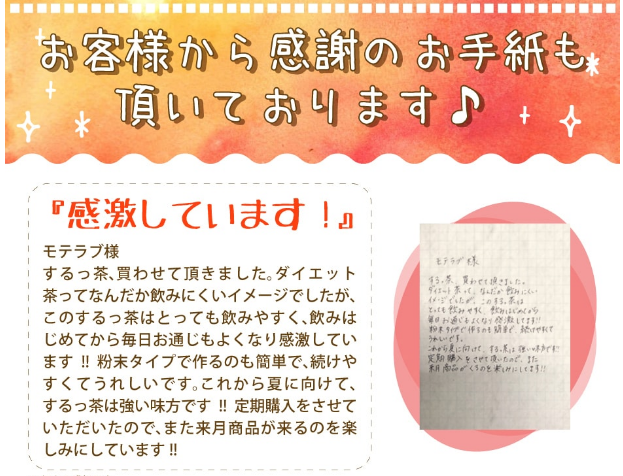 お客様から感謝のお手紙も
頂いております♪
『感激しています!』
モテラブ様
するっ茶、買わせて頂きました。ダイエット
茶ってなんだか飲みにくいイメージでしたが、
このするっ茶はとっても飲みやすく、飲みは
じめてから毎日お通じもよくなり感激してい
ます!! 粉末タイプで作るのも簡単で、続けや
すくてうれしいです。これから夏に向けて、
するっ茶は強い味方です!! 定期購入をさせて
いただいたので、また来月商品が来るのを楽
しみにしています!!
モテラブ様
するっ茶、買わせて頂きました。
ダイエット茶って、なんだか飲みにくい
イメージでしたが、このするっ茶は
とっても飲みやすく、飲みはじめてから
毎日お通じもよくなり感激してます!!
粉末タイプで作るのも簡単で、続けやすくて
うれしいです。
これから夏に向けて、するっ茶は強い味方です!
定期購入をさせて頂いたので、また
来月商品がくるのを楽しみにしてます!!